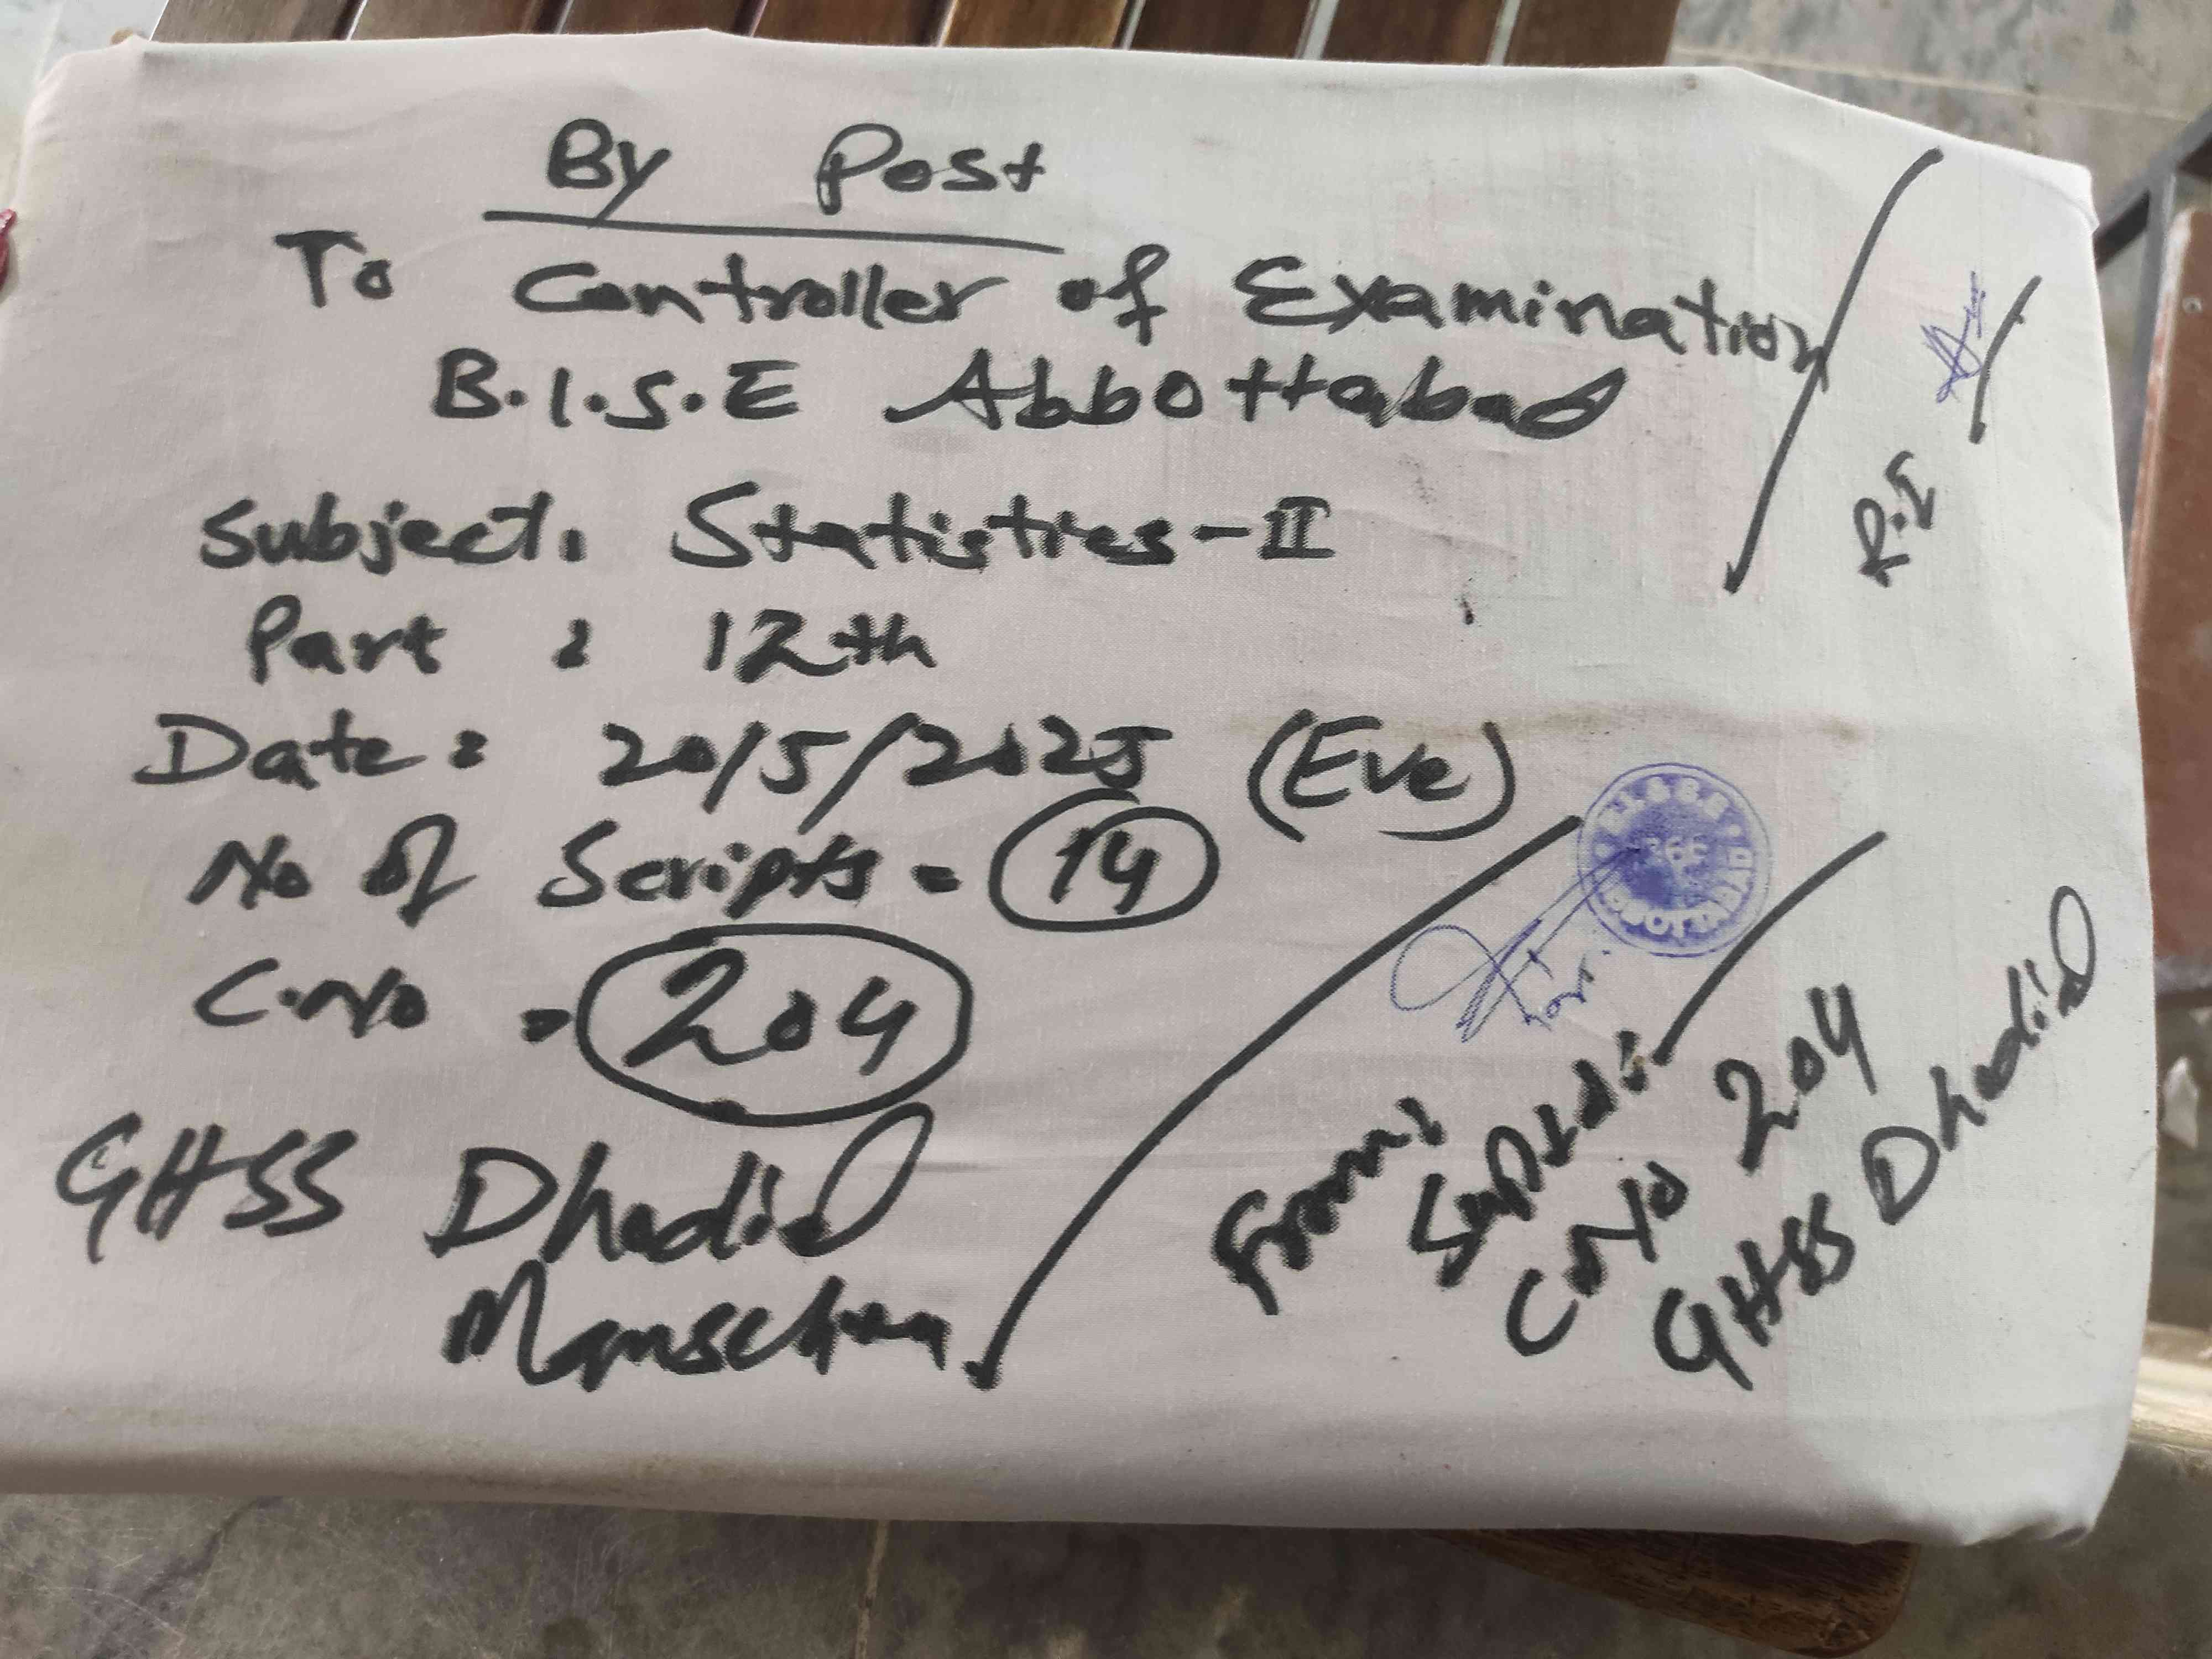 By Post
To Controller of Examination
B.I.S.E Abbottabad
Subject: Statistics-II
Part : 12th
Date: 20/5/2025 (Eve)
No of Scripts = 14
C.No = 204
GHSS Dhodial
Mansehra
R.I
From:
Suptdt:
C.No 204
GHSS Dhodial